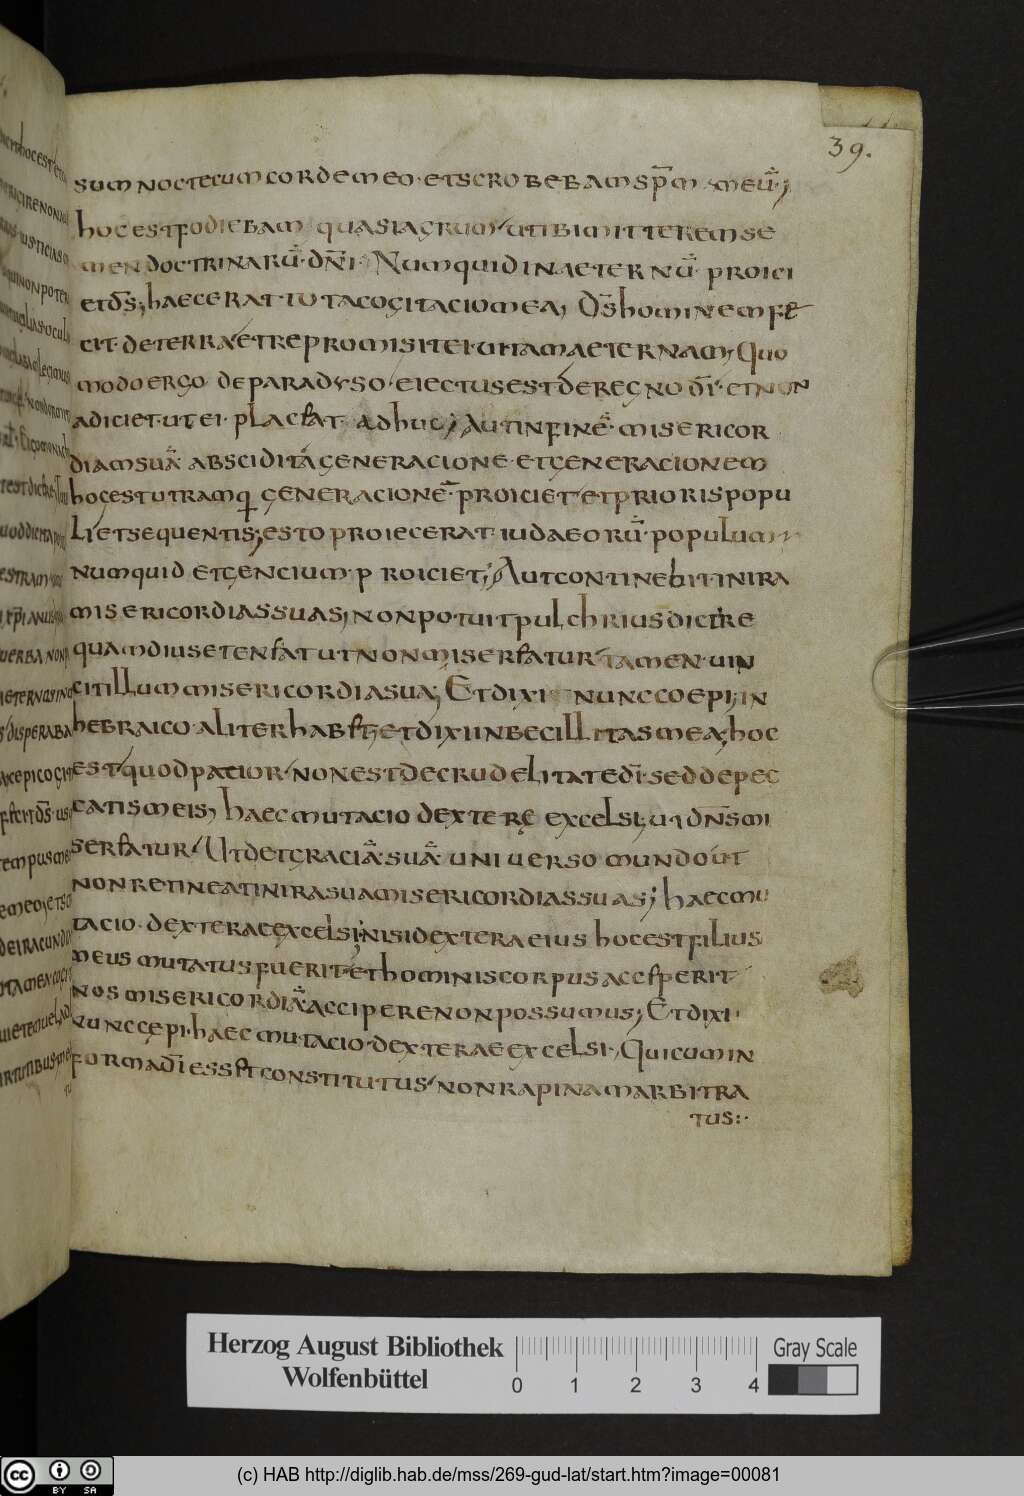 39.
sum nocte cum corde meo· et scrobebam sp̅m meū;
hoc est fodiebam quasi agrum/ ut ibi mitterem se
men doctrinarū· dn̅i· Numquid in aeternū· proici
et ds̅; haec erat tota cogitacio mea; Ds̅ hominem fe
cit· de terra/ et repromisit ei· uitam aeternam; Quo
modo ergo· de paradyso· eiectus est de regno di̅· et non
adiciet· ut ei· placeat· adhuc; Aut in finē· misericor
diam suā abscidit a generacione· et generacionem
hoc est utramq generacionē· proiciet· et prioris popu
li/ et sequentis; esto proiecerat· iudaeorū· populum
numquid et gencium· proiciet; Aut continebit in ira
misericordias suas; non potuit pulchrius dicere
quam diu se teneat ut non misereatur/ tamen uin
cit illum misericordia sua; Et dixi nunc coepi; in
hebraico aliter habet· et dixi inbecillitas mea; hoc
est/ quod patior/ non est de crudelitate di̅· sed de pec
catis meis; haec mutacio dextere excelsi; ut dn̅s mi
sereatur/ Ut det graciā suā uniuerso mundo ut
non retineat in ira sua misericordias suas; haec mu
tacio· dexterae excelsi; nisi dextera eius hoc est filius
meus mutatus fuerit· et hominis corpus acceperit
nos misericordiā accipere non possumus; Et dixi·
nunc cepi· haec mutacio· dexterae excelsi·, Qui cum in
forma di̅ esset constitutus/ non rapinam arbitra
tus:·
Herzog August Bibliothek
Wolfenbüttel
0 1 2 3 4
Gray Scale
cc BY SA
(c) HAB http://diglib.hab.de/mss/269-gud-lat/start.htm?image=00081